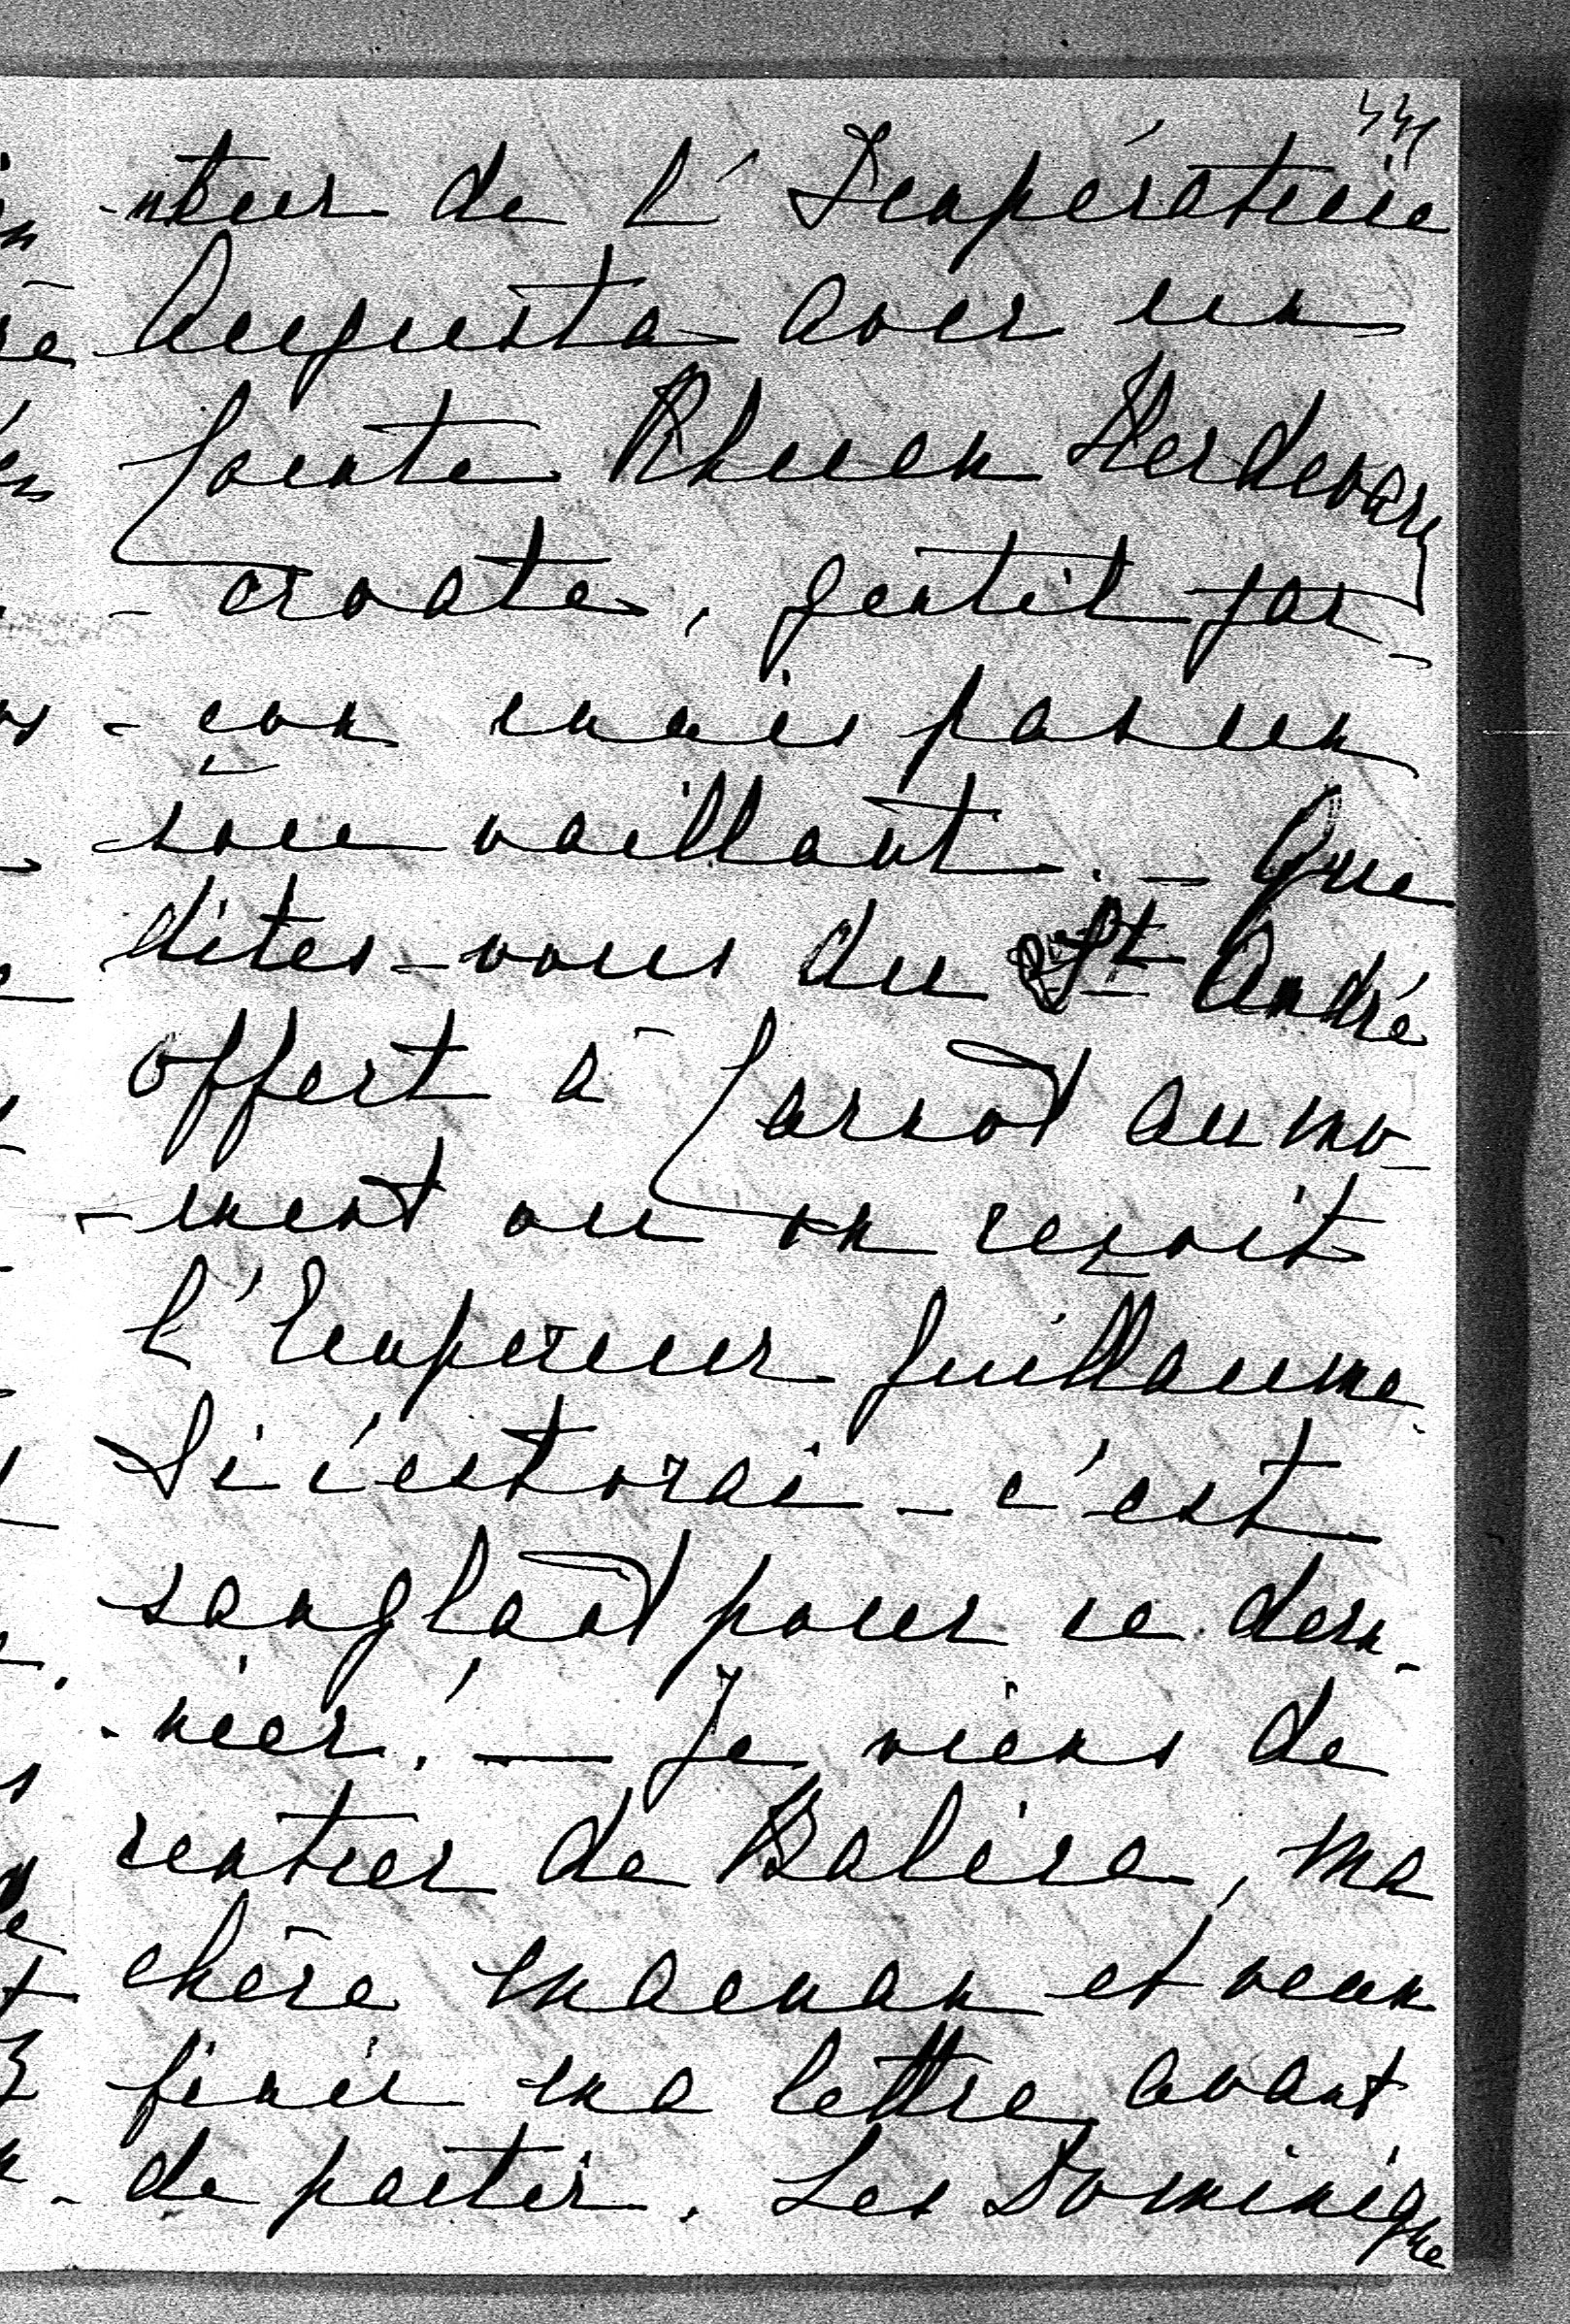 -nteur de L'Impératrice
Augusta avec un
Comte Khuen Hedervary
- croate, gentil gar-
- çon mais pas un
sou vaillant. - Que
dites-vous du St André
offert à Carnot au mo-
-ment ou on reçoit
l'Empereur Guillaume.
Si c'est vrai - c'est
sanglant pour ce der-
-nier! - Je viens de
rentrer de Balice, ma
chère maman et veux
finir ma lettre avant
de partir. Les Dominique